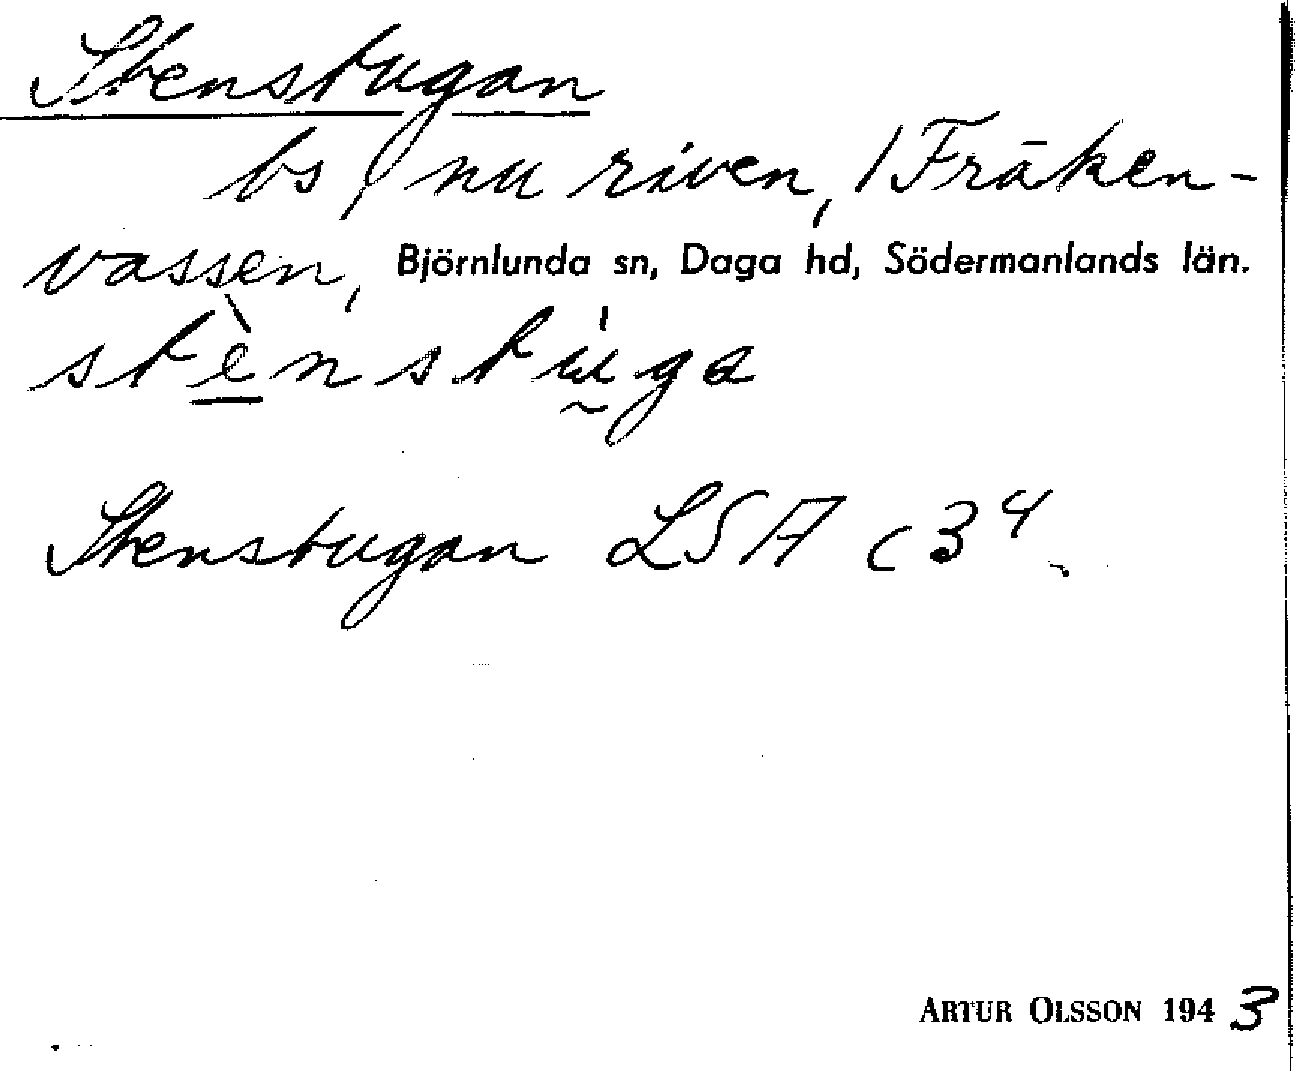 Stenstugan
bs, nu riven, / Fräken-
vassen, Björnlunda sn, Daga hd, Södermanlands län.
stènstúga
Stenstugan LSA c3⁴
ARTUR OLSSON 1943